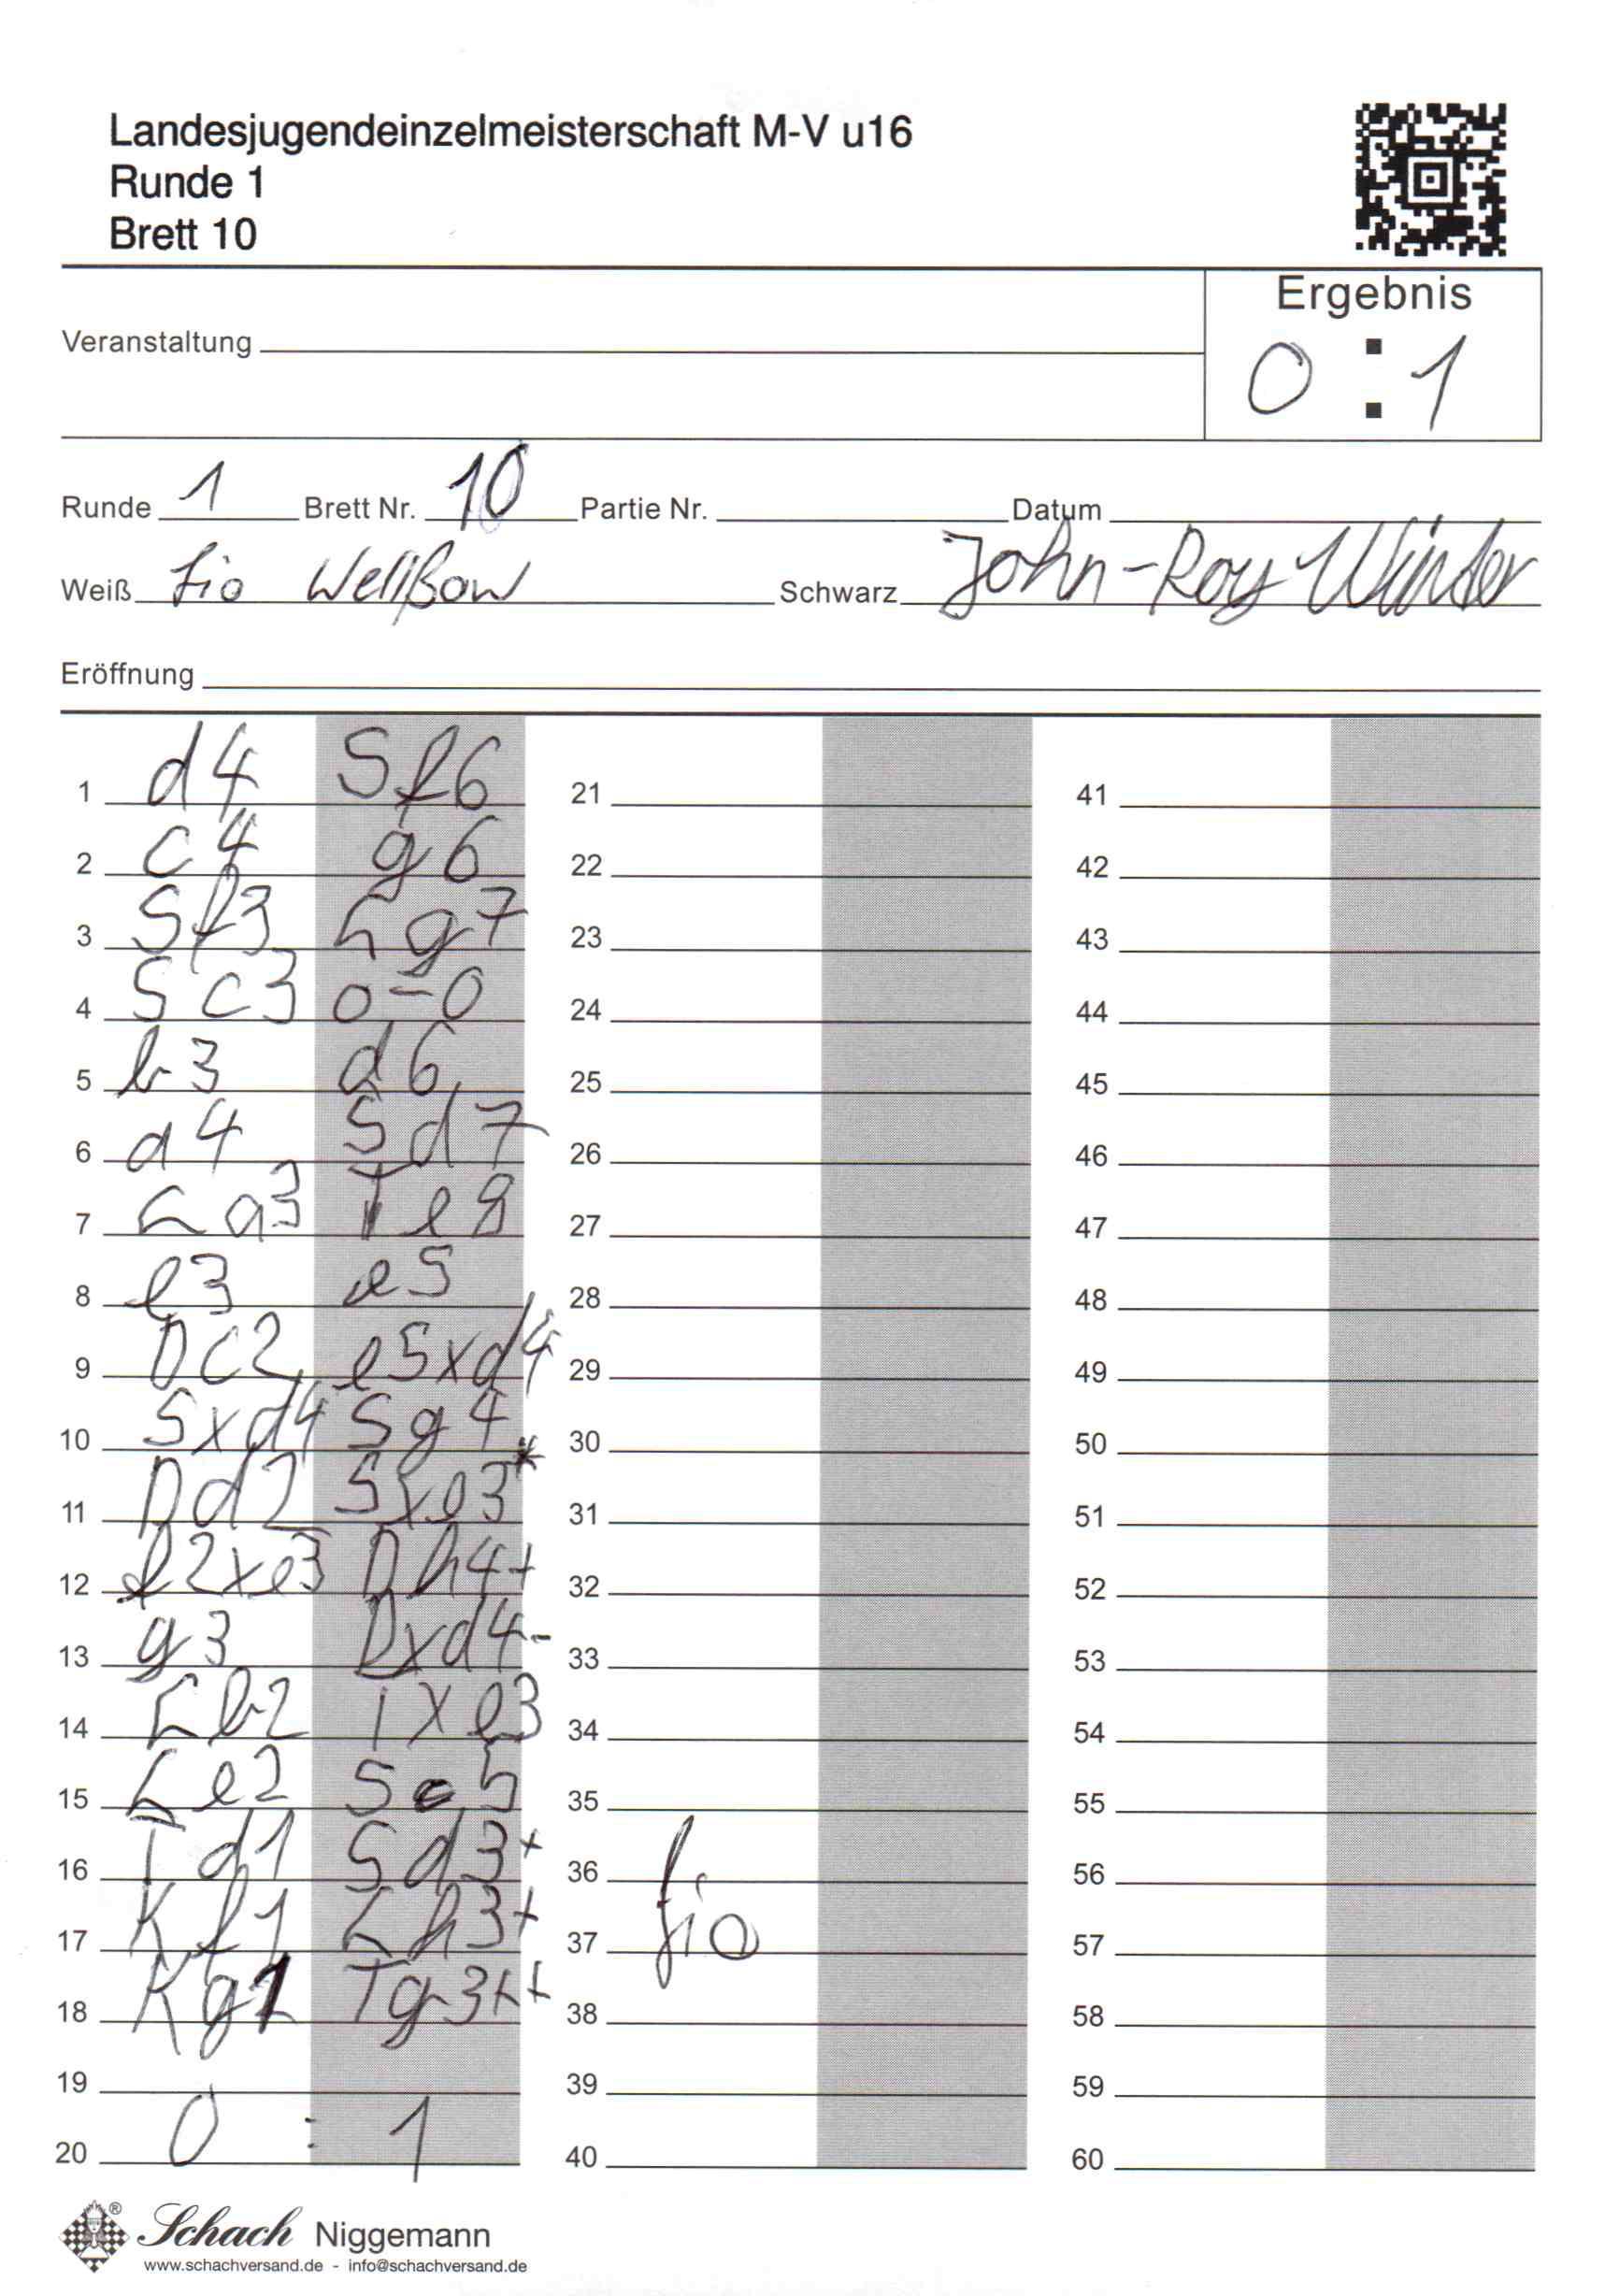 Landesjugendeinzelmeisterschaft M-V u16
Runde 1
Brett 10
Ergebnis
0 : 1
Veranstaltung
Runde 1 Brett Nr. 10 Partie Nr. Datum
Weiß Fio Wellßow Schwarz John-Roy Winter
Eröffnung
1 d4 Sf6 21 41
2 c4 g6 22 42
3 Sf3 Lg7 23 43
4 Sc3 0-0 24 44
5 b3 d6 25 45
6 a4 Sd7 26 46
7 La3 Te8 27 47
8 e3 e5 28 48
9 Dc2 e5xd4 29 49
10 Sxd4 Sg4 30 50
11 Dd2 Sxe3* 31 51
12 f2xe3 Dh4+ 32 52
13 g3 Dxd4- 33 53
14 Lb2 Txe3 34 54
15 Le2 Se5 35 55
16 Td1 Sd3+ 36 56
17 Kf1 Lh3+ 37 Fio 57
18 Kg1 Tg3++ 38 58
19 39 59
20 0 : 1 40 60
Schach Niggemann
www.schachversand.de - info@schachversand.de